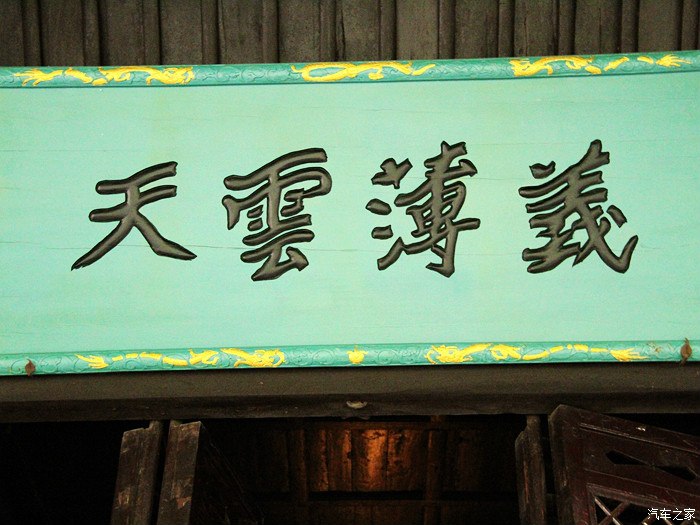 義薄雲天
汽车之家